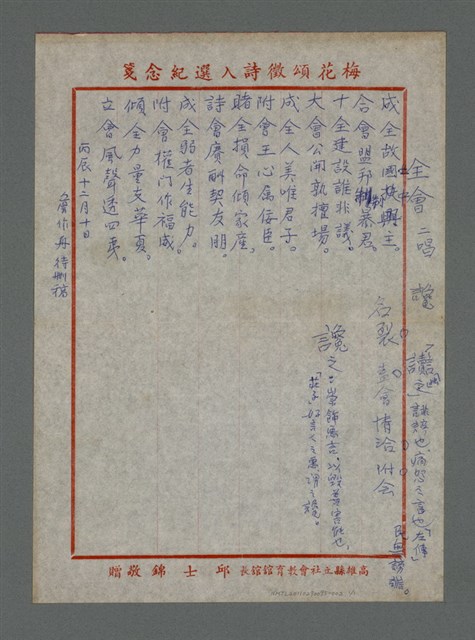 梅花頌徵詩入選紀念箋
全會 二唱
成全故國扶興主。
合會盟邦制暴君。
十全建設誰非議。
大會公開執擅場。
成全人美唯君子。
附會王心屬佞臣。
賭全損命傾家產。
詩會賡酬契友朋。
成全弱者生能力。
附會權門作福威。
傾全力量支華夏。
立會風聲透四夷。
丙辰十二月十日
詹作舟待刪稿
讒之：崇飾惡言，以毀善害能也，
「莊子」好言人之惡謂之讒。
高雄縣立社會教育館館長 邱士錦敬贈